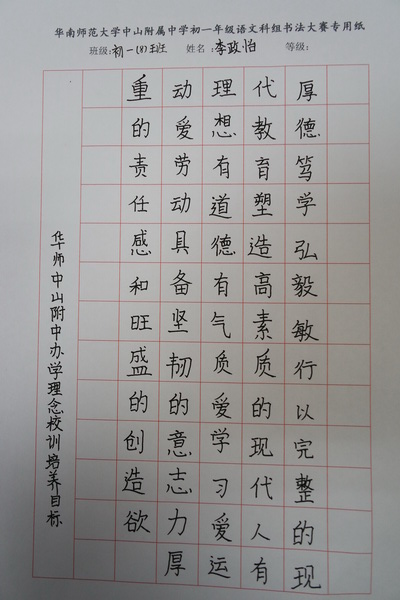 华南师范大学中山附属中学初一年级语文科组书法大赛专用纸
班级:初一(8)班 姓名:李政怡 等级:
厚德笃学弘毅敏行以完整的现
代教育塑造高素质的现代人有
理想有道德有气质爱学习爱运
动爱劳动具备坚韧的意志力厚
重的责任感和旺盛的创造欲
华师中山附中办学理念校训培养目标